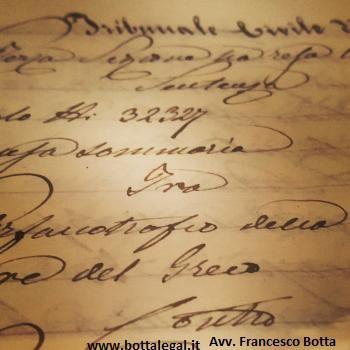 Tribunale Civile
Terza Sezione ha reso la
Sentenza
N: 32327
sommaria
Tra
Orfanotrofio della
del Greco
Contro
www.bottalegal.it Avv. Francesco Botta